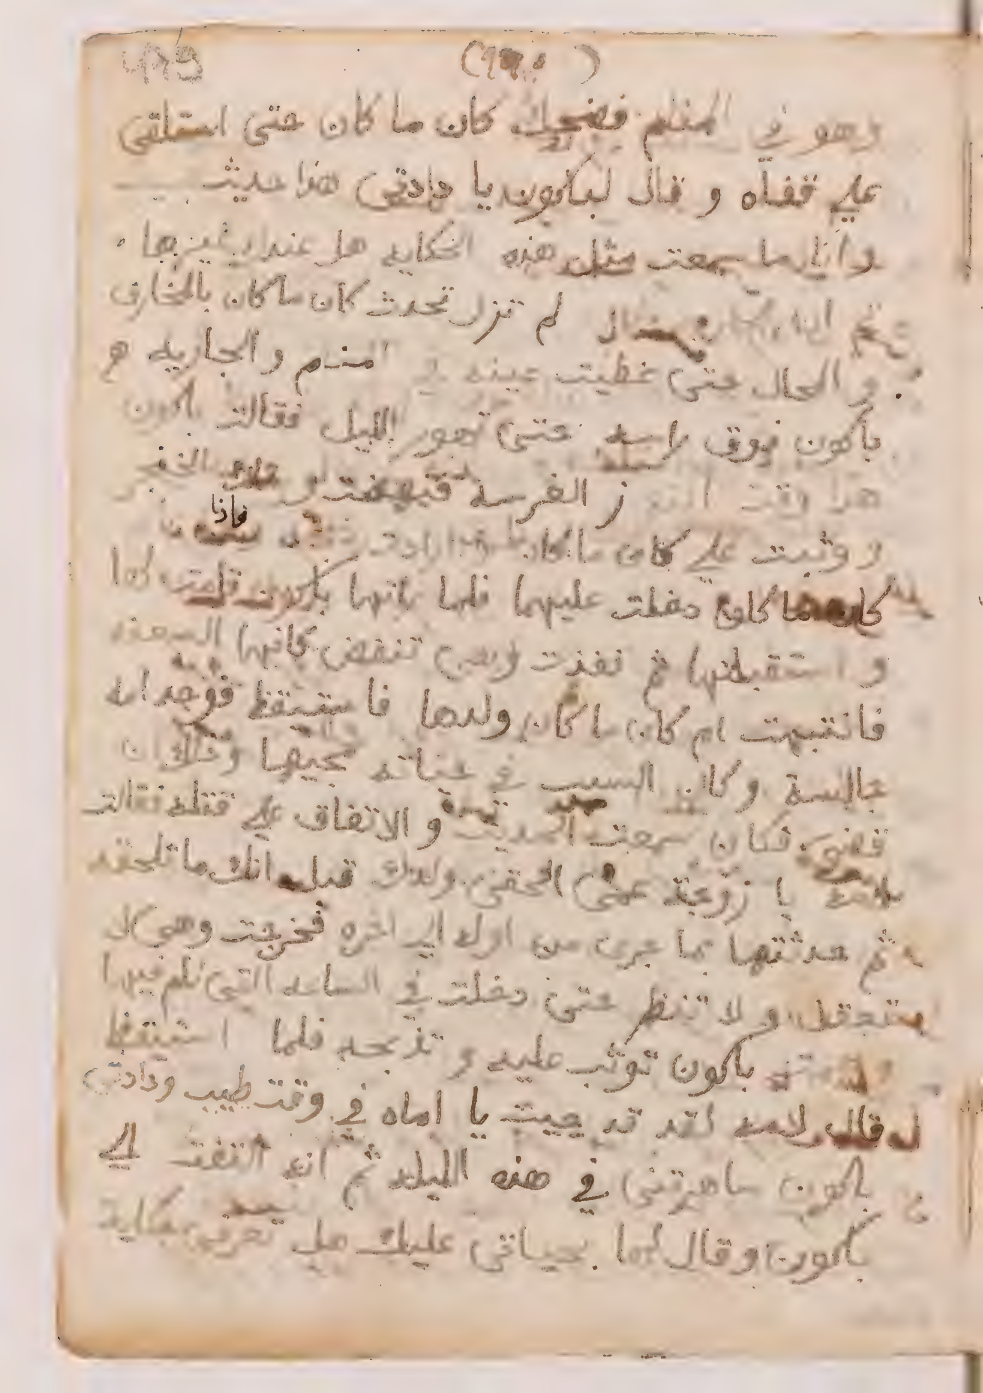 وهو في المنام فضحك كان ما كان حتى استلقى
على قفاه و قال لباكون يا دادتي هذا حديث
و انا ما سمعت مثل هذه الحكايه هل عندك غيرها
ثم لم تزل تحدث كان ما كان بالمخارف
و المحال حتى غطيت عينه في المنام و الجاريه
باكون فوق راسه حتى تهور الليل فقالت باكون
هذا وقت الفرسه فنهضت و الخنجر
و وثبت على كان ما كان ارادت واذا
كان ما كان دخلت عليهما فلما راتها باكون قامت لها
و استقبلتها ثم تنفض كانها السعفه
فانتبهت ام كان ما كان ولدها فاستيقظ فوجد امه
جالسة وكان السبب في حياته مجيها و ان
قضى فكان سمعت الحديث و الاتفاق على قتله فقالت
لامه يا زوجة عمي الحقي ولدك قبل انك ما تلحقه
ثم حدثتها بما جرى من اوله الى اخره فخرجت وهي لا
تعقل و لا تنظر حتى دخلت في الساعه التي نام فيها
باكون توثب عليه و تذبحه فلما استيقظ
قال لامه لقد جيت يا اماه في وقت طيب و دادتي
باكون ساهرتني في هذه الليله ثم انه التفت الى
باكون و قال لها بحياتي عليك هل تعرفي حكاية